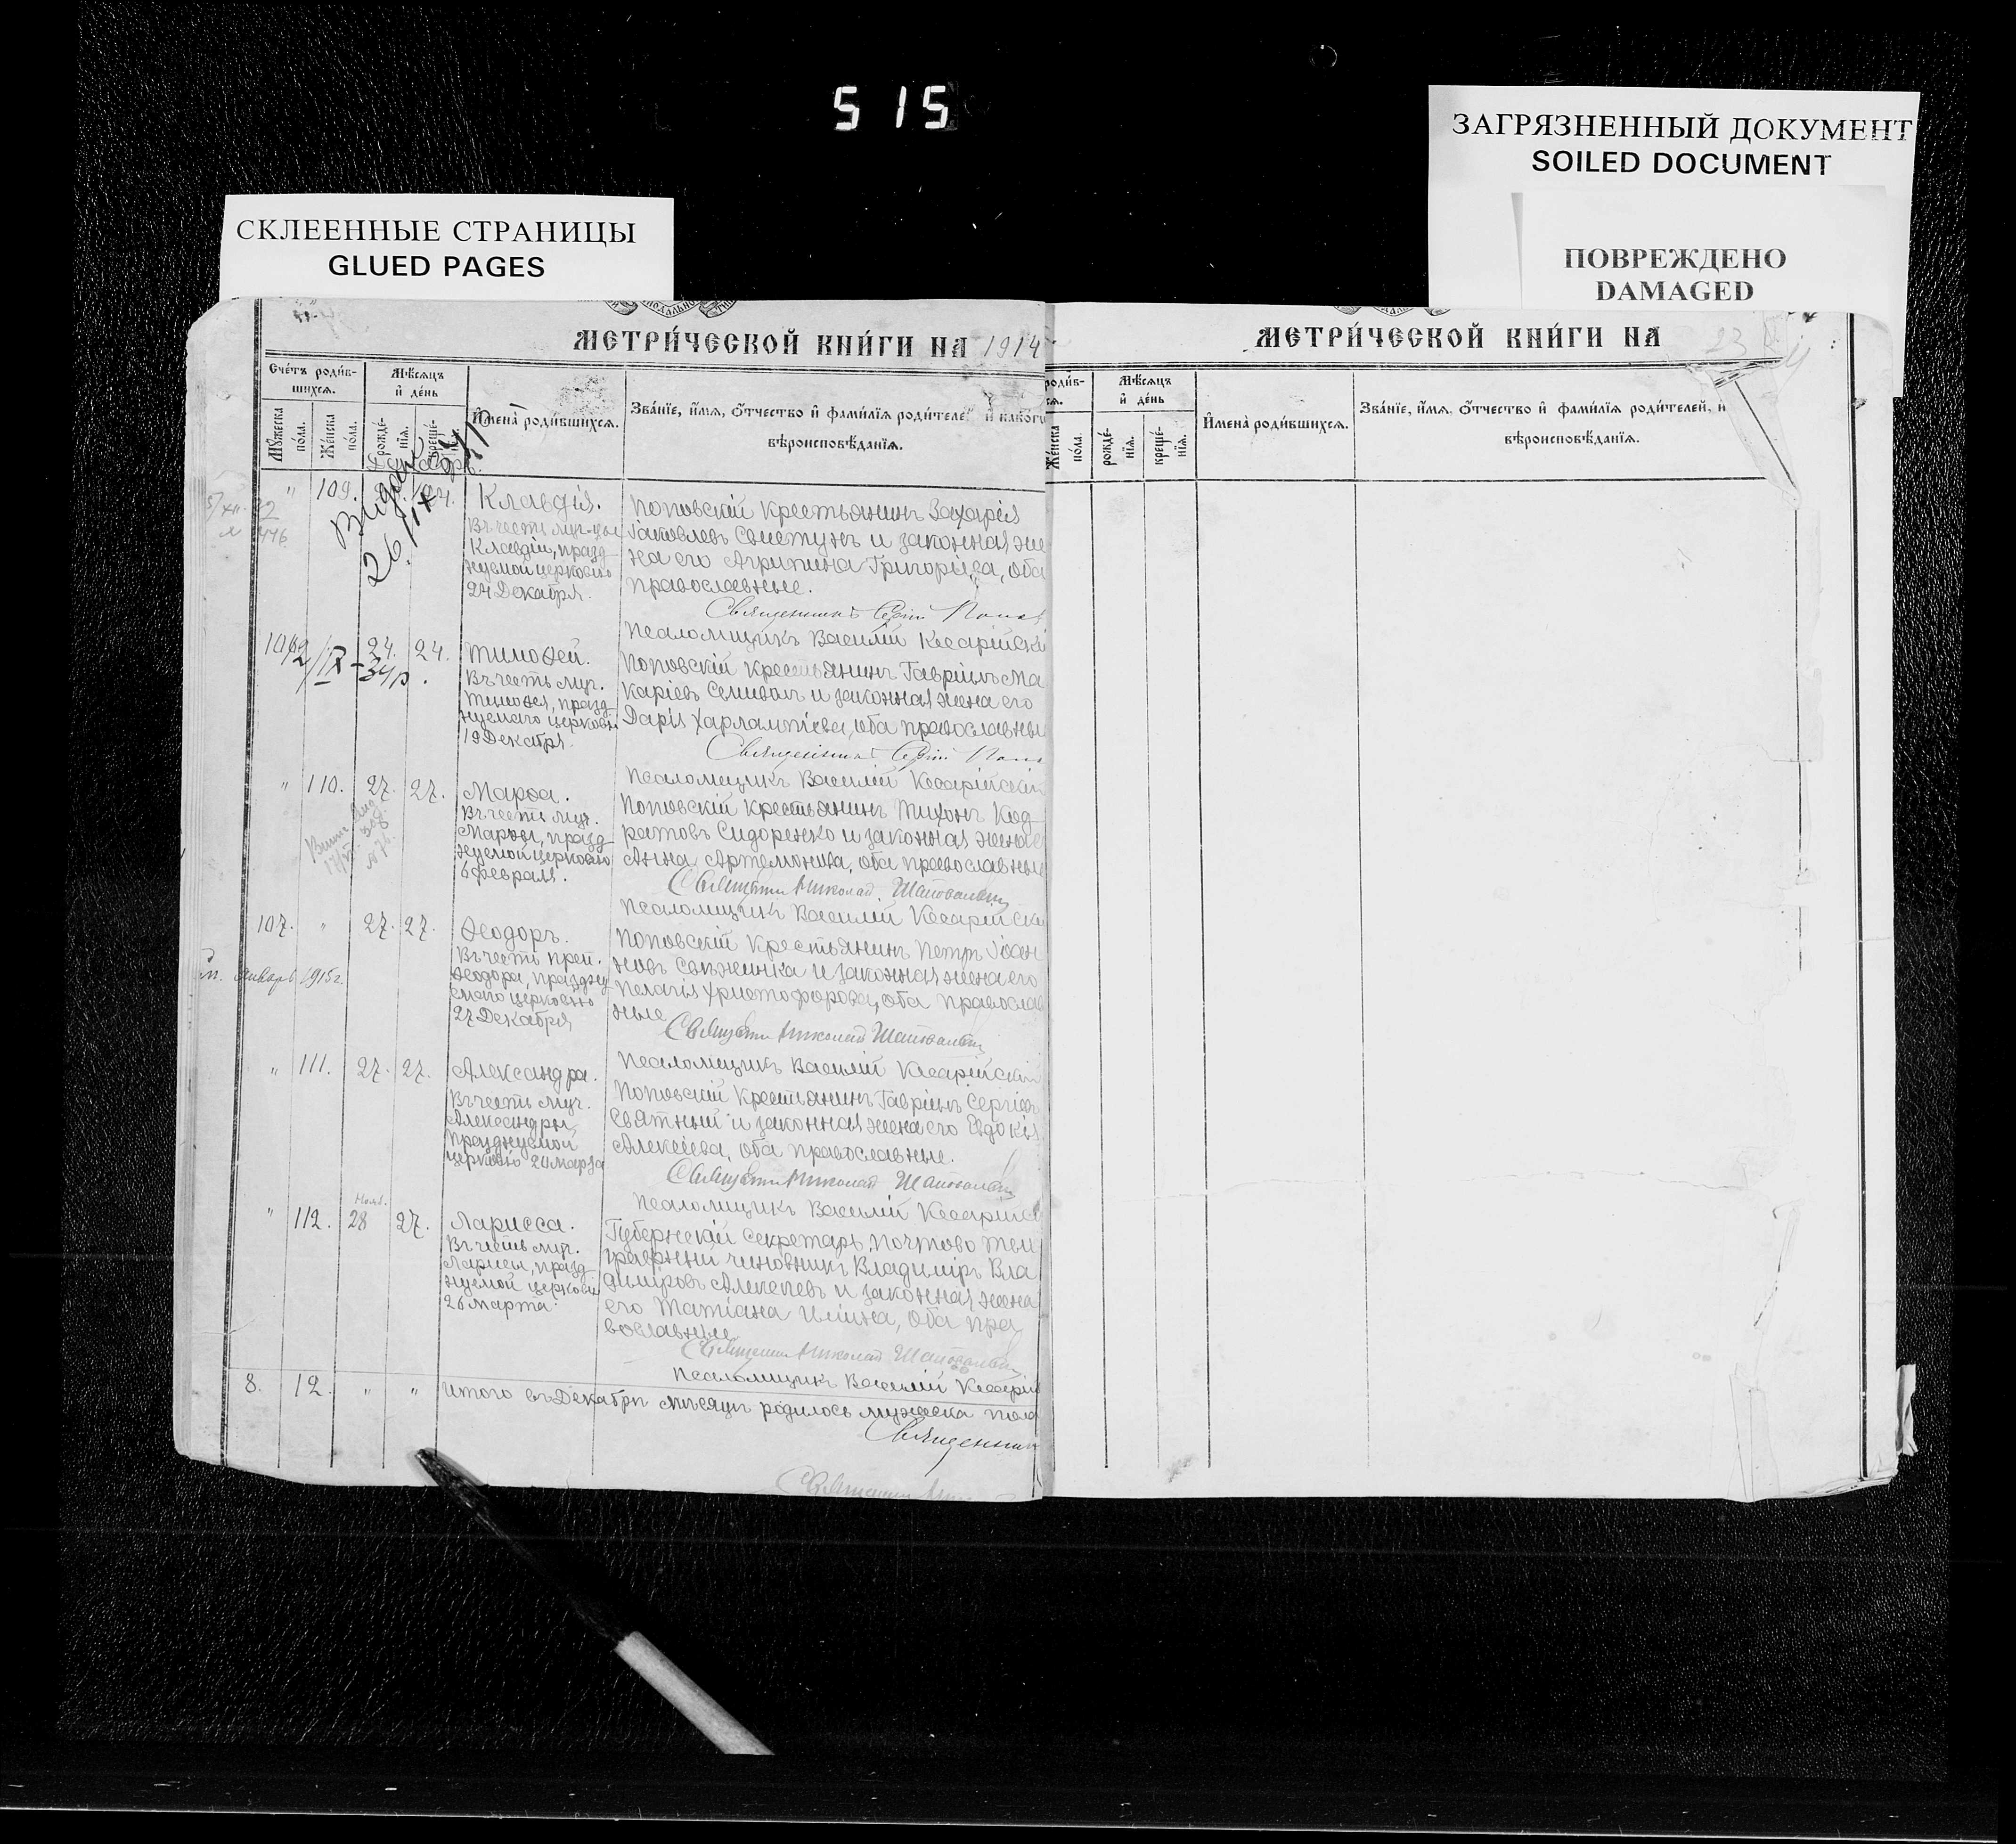 515
ЗАГРЯЗНЕННЫЙ ДОКУМЕНТ
SOILED DOCUMENT
ПОВРЕЖДЕНО
DAMAGED
СКЛЕЕННЫЕ СТРАНИЦЫ
GLUED PAGES
МЕТРИ́ЧЕСКОЙ КНИ́ГИ НА 1914
Сче́тъ роди́в-
шихся.
Мѣ́сяцъ
и҆ де́нь
Мꙋ́жеска
по́ла.
Же́нска
по́ла.
рожде́-
нїѧ.
креще́-
нїѧ.
И҆мена̀ роди́вшихся.
Зва́нїе, и҆́мѧ, ѻ҆́тчество и҆ фами́лїѧ роди́теле и како́гѡ
вѣроисповѣ́данїѧ.
Декабрь.
" 109. 24.
Клавдія.
Въ честь муч-цы
Клавдіи, празд-
нуемой церковію
24 Декабря.
Поповскій крестьянинъ Захарія
Іаковлевъ Свистунъ и законная же
на его Агрипина Григоріева, оба
православные.
Священникъ Сергій Попов
Псаломщикъ Василій Кесарійскі
106 24. 24.
Тимоѳей.
Въ честь муч.
Тимоѳея, празд-
нуемаго церковію
19 Декабря.
Поповскій крестьянинъ Гавріилъ Ма
каріевъ Семивол и законная жена его
Дарія Харлампіева, оба православны
Священникъ Сергій Попо
Псаломщикъ Василій Кесарійскій
" 110. 27. 27.
Марѳа.
Въ честь муч.
Марѳы, празд-
нуемой церковію
6 февраля.
Поповскій крестьянинъ Тихонъ Код-
ратовъ Сидоренко и законная жена е
Анна Артемоніева, оба православные
Священникъ Николай
Псаломщикъ Василій Кесарійскі
107. " 27. 27.
Ѳеодоръ.
Въ честь преп.
Ѳеодора, праздну-
емаго церковію
27 Декабря
Январь 1915 г.
Поповскій крестьянинъ Петръ Іоан-
новъ Свѣжинка и законная жена его
Пелагія Христофорова, оба православ
ные
Священникъ Николай
Псаломщикъ Василій Кесарійскій
" 111. 27. 27.
Александра.
Въ честь муч.
Александры
празднуемой
церковію 20 марта
Поповскій крестьянинъ Гавріилъ Сергіевъ
Святный и законная жена его Евдокія
Алексіева, оба православные.
Священникъ Николай
Псаломщикъ Василій Кесарійск
Нояб.
" 112. 28 27.
Ларисса.
Въ честь муч.
Лариссы, празд-
нуемой церковію
26 марта.
Губернскій секретарь почтово тел
графный чиновникъ Владиміръ Вла
диміровъ Алексѣевъ и законная жена
его Татіана Иліина, оба пра
вославные
Священникъ Николай
Псаломщикъ Василій Кесарій
8. 12. " " Итого въ Декабрѣ мѣсяцѣ родилось мужеска пола
Священник
МЕТРИ́ЧЕСКОЙ КНИ́ГИ НА
роди́в-
ся.
Мѣ́сяцъ
и҆ де́нь
Же́нска
по́ла.
рожде́-
нїѧ.
креще́-
нїѧ.
И҆мена̀ роди́вшихся.
Зва́нїе, и҆́мѧ, ѻ҆́тчество и҆ фами́лїѧ роди́телей, и҆
вѣроисповѣ́данїѧ.